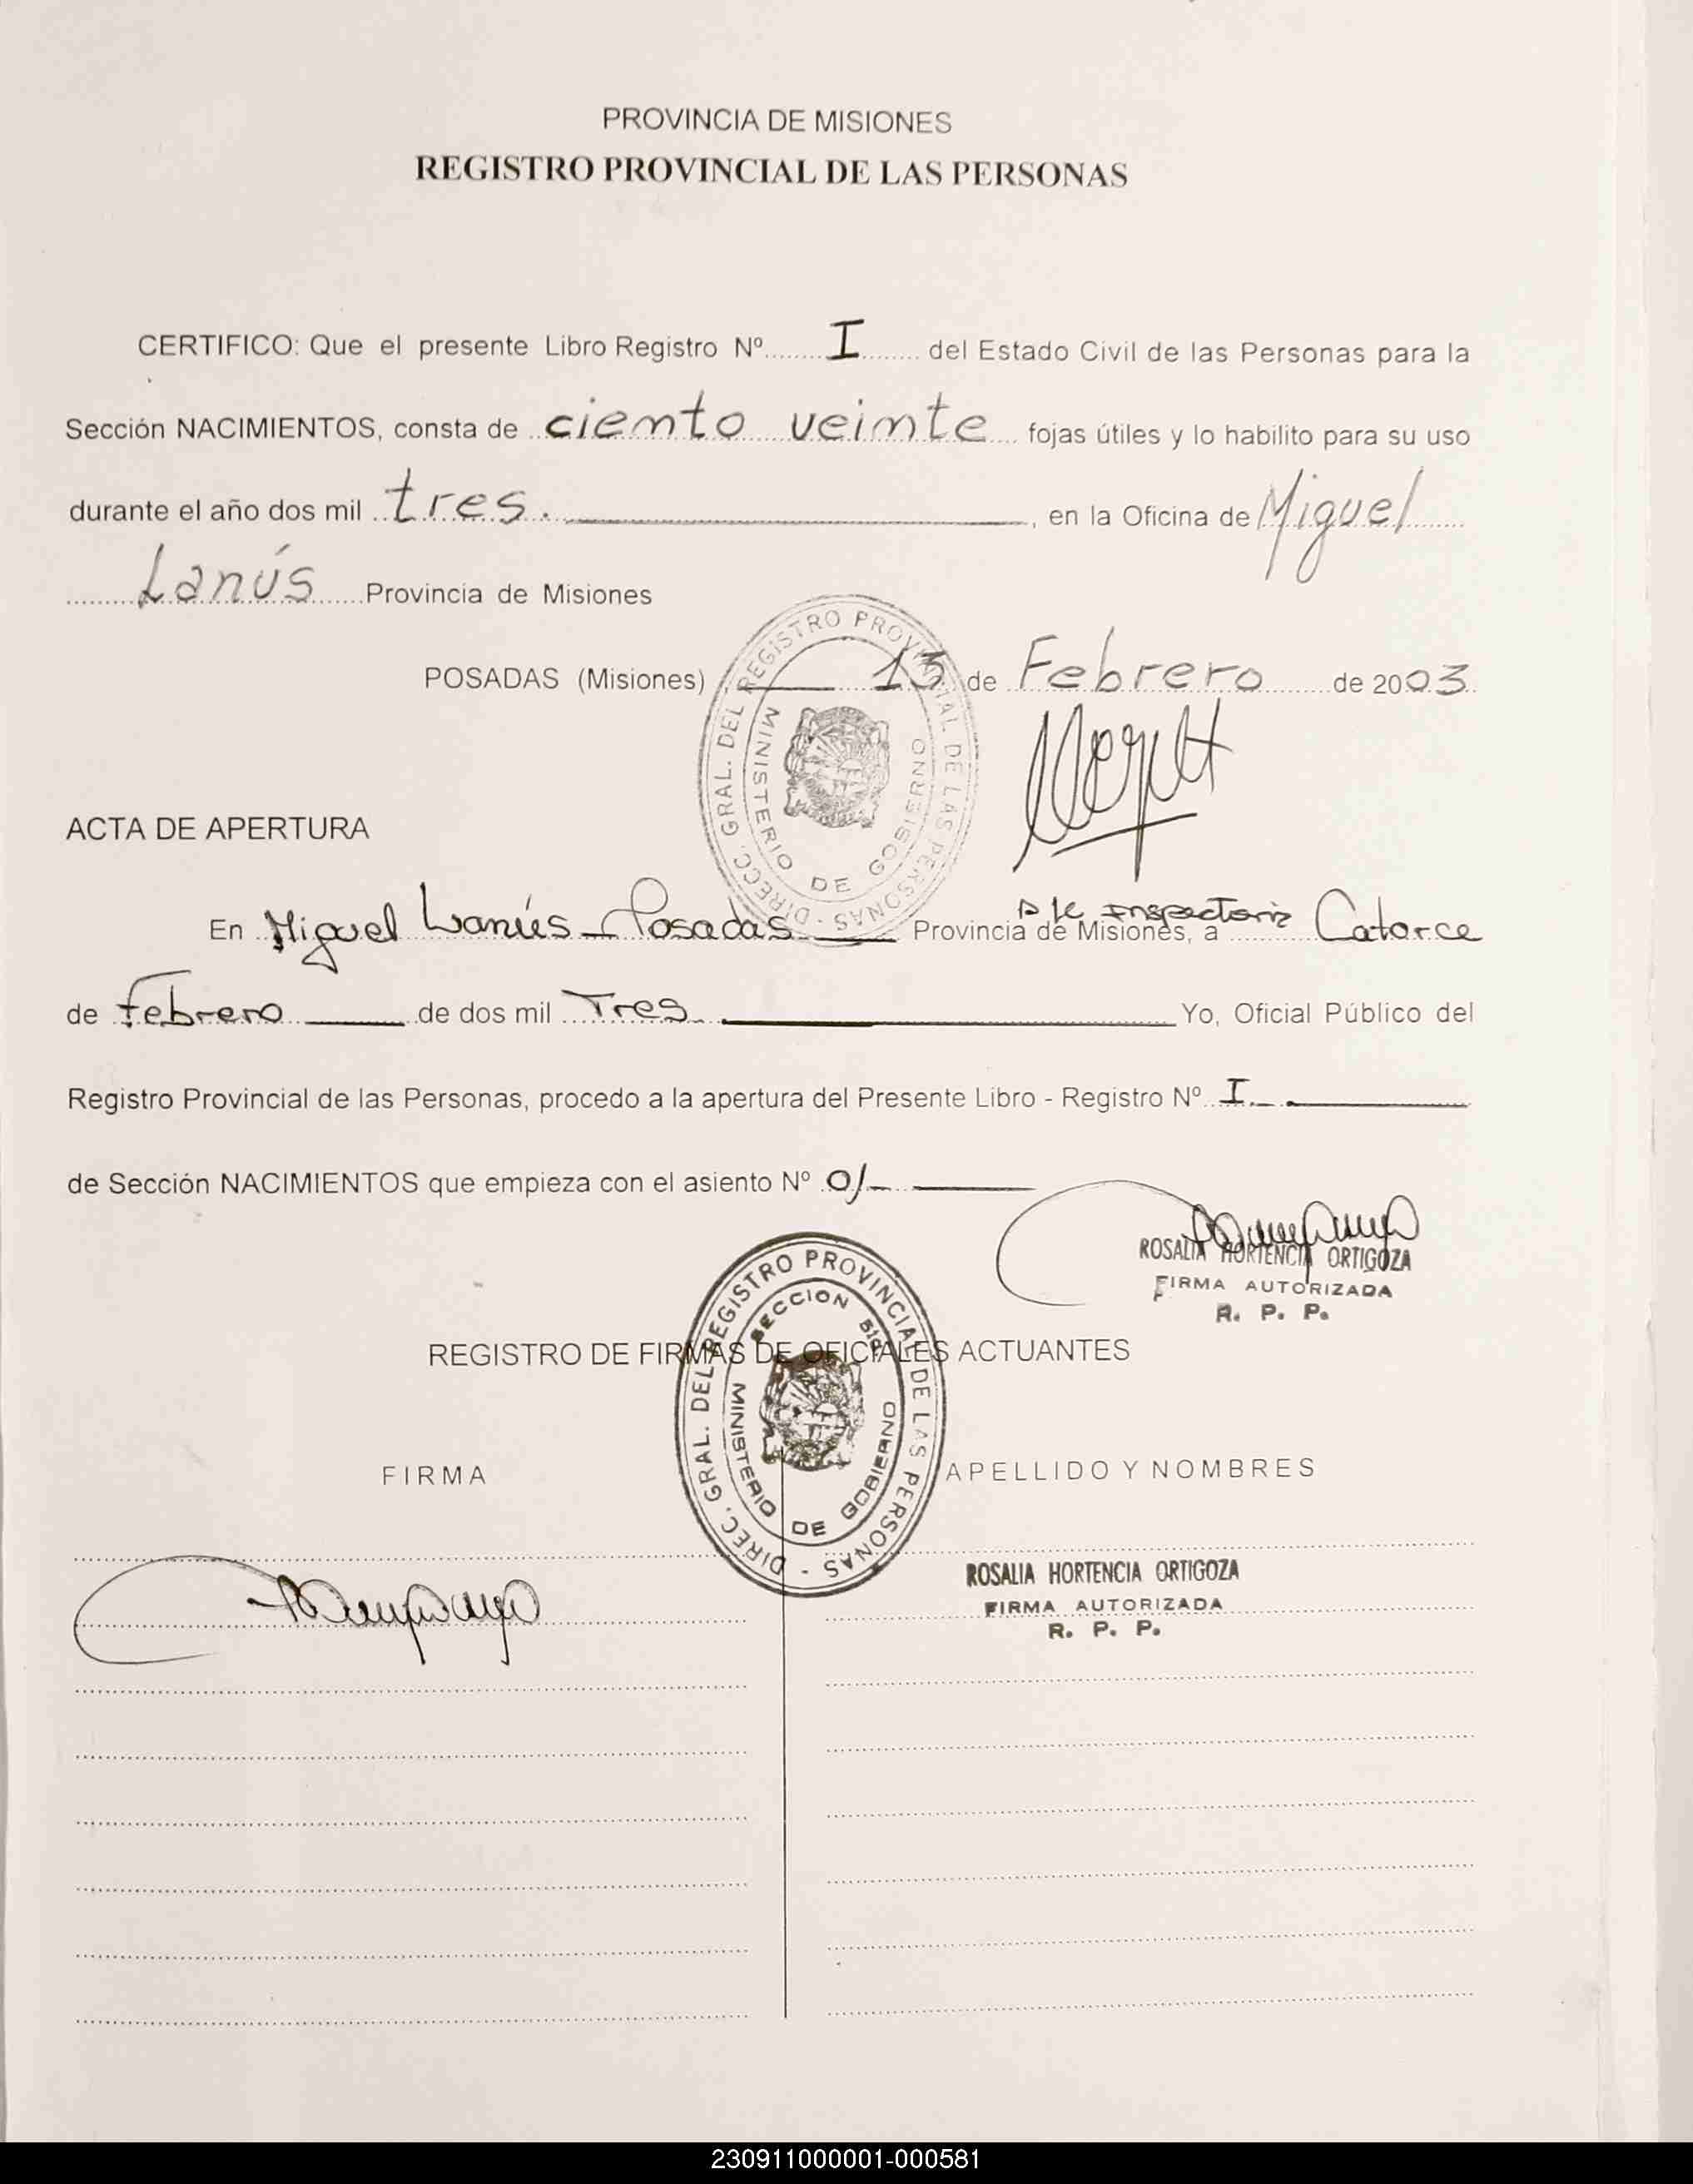 PROVINCIA DE MISIONES
REGISTRO PROVINCIAL DE LAS PERSONAS
CERTIFICO: Que el presente Libro Registro Nº I del Estado Civil de las Personas para la
Sección NACIMIENTOS, consta de ciento veinte fojas útiles y lo habilito para su uso
durante el año dos mil tres. , en la Oficina de Miguel
Lanús Provincia de Misiones
POSADAS (Misiones) 13 de Febrero de 2003.
DIRECC. GRAL. DEL REGISTRO PROVINCIAL DE LAS PERSONAS -
MINISTERIO DE GOBIERNO
ACTA DE APERTURA
Inspectoria
En Miguel Lanús - Posadas Provincia de Misiones, a Catorce
de Febrero de dos mil Tres Yo, Oficial Público del
Registro Provincial de las Personas, procedo a la apertura del Presente Libro - Registro Nº I
de Sección NACIMIENTOS que empieza con el asiento Nº 01
ROSALIA HORTENCIA ORTIGOZA
FIRMA AUTORIZADA
R. P. P.
DIREC. GRAL. DEL REGISTRO PROVINCIAL DE LAS PERSONAS -
SECCION
MINISTERIO DE GOBIERNO
REGISTRO DE FIRMAS DE OFICIALES ACTUANTES
FIRMA APELLIDO Y NOMBRES
ROSALIA HORTENCIA ORTIGOZA
FIRMA AUTORIZADA
R. P. P.
230911000001-000581